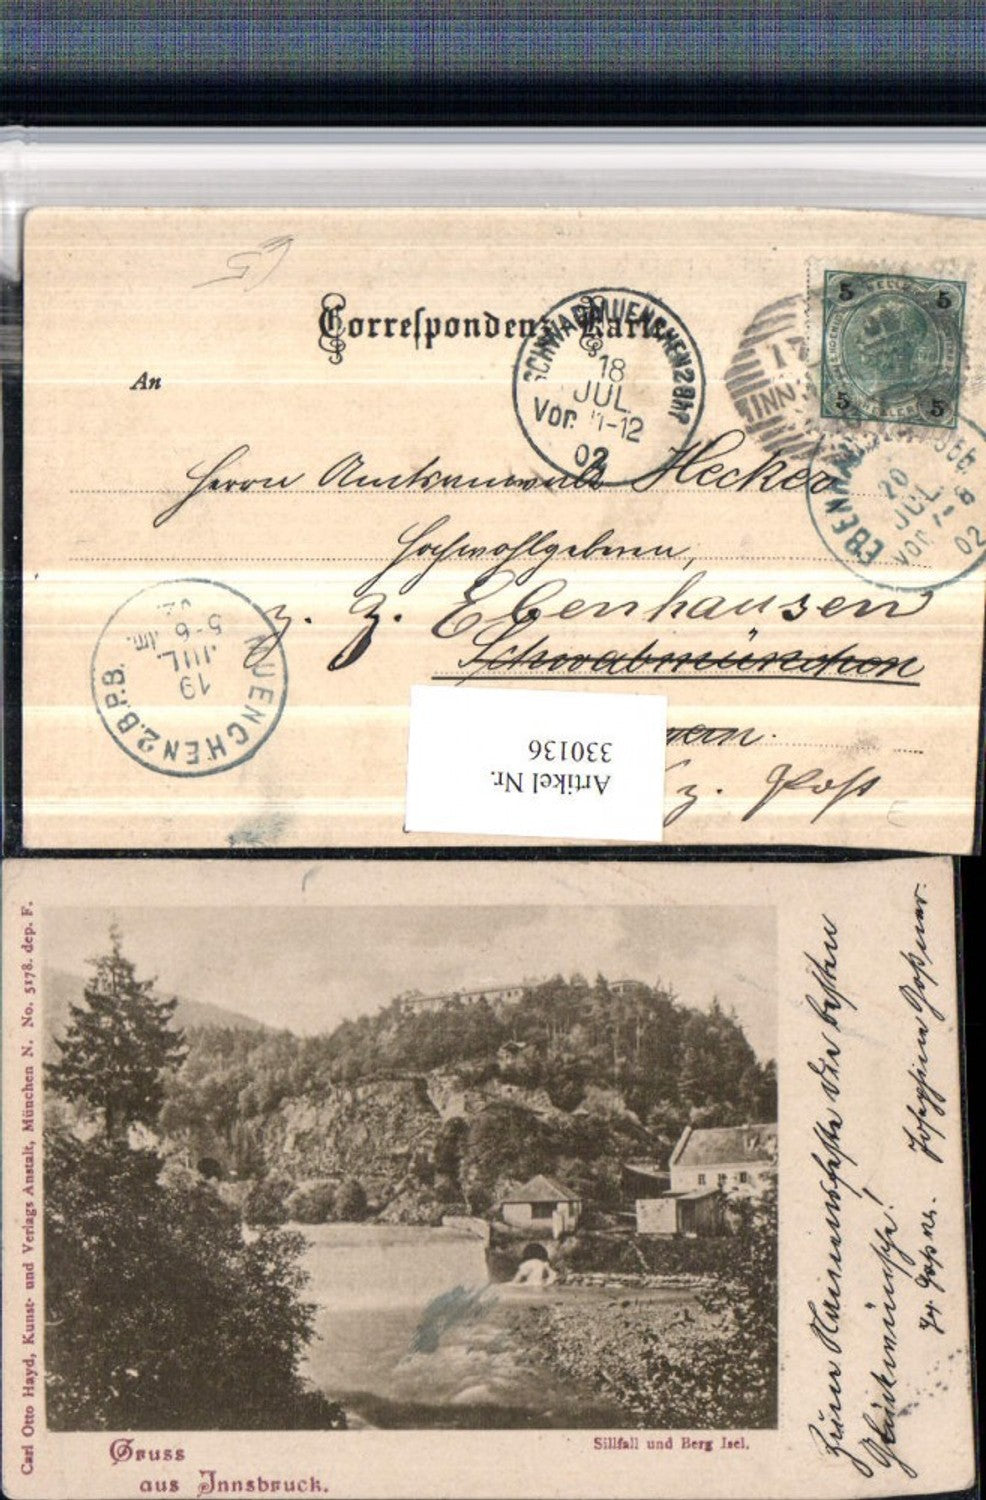 Correspondenz-Karte
An
Herrn Amtsanwalt Hecker
Hochwohlgeboren,
z. Z. Ebenhausen
Schwabmünchen
z. Post
SCHWABMUENCHEN
18
JUL.
Vor. 11-12
02
5 5
5 5
17
INN
EBENHAUSEN
20
JUL.
Vor. 7-8
02
MUENCHEN 2.B.P.B.
19
JUL.
5-6
02
Artikel Nr.
330136
Carl Otto Hayd, Kunst- und Verlags Anstalt, München N. No. 5178. dep. F.
Sillfall und Berg Isel.
Gruss
aus Innsbruck.
Zum Namensfeste die besten
Glückwünsche!